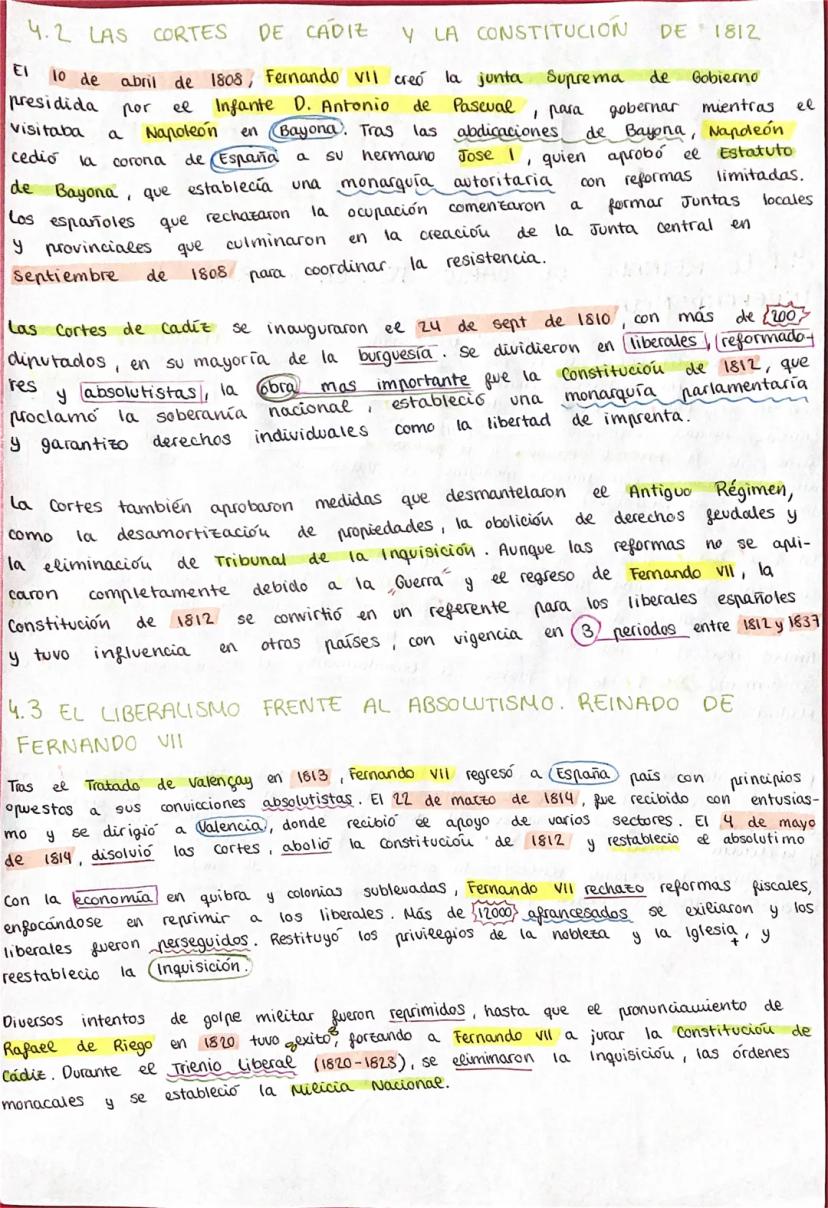 4.2 LAS CORTES DE CÁDIZ Y LA CONSTITUCIÓN DE 1812
El 10 de abril de 1808, Fernando VII creó la junta Suprema de Gobierno
presidida por el Infante D. Antonio de Pascual, para gobernar mientras el
visitaba a Napoleón en Bayona. Tras las abdicaciones de Bayona, Napoleón
cedió la corona de España a su hermano Jose I, quien aprobó el Estatuto
de Bayona, que establecía una monarquía autoritaria con reformas limitadas.
Los españoles que rechazaron la ocupación comenzaron a formar Juntas locales
y provinciales que culminaron en la creación de la Junta central en
septiembre de 1808 para coordinar la resistencia.
Las Cortes de Cadiz se inauguraron el 24 de sept de 1810, con más de 200
diputados, en su mayoría de la burguesía. Se dividieron en liberales, reformado-
res y absolutistas, la obra mas importante fue la Constitución de 1812, que
proclamó la soberanía nacional, estableció una monarquía parlamentaria
y garantizo derechos individuales como la libertad de imprenta.
La Cortes también aprobaron medidas que desmantelaron el Antiguo Régimen,
como la desamortización de propiedades, la obolición de derechos feudales y
la eliminación de Tribunal de la Inquisición. Aunque las reformas no se apli-
caron completamente debido a la "Guerra" y el regreso de Fernando VII, la
Constitución de 1812 se convirtió en un referente para los liberales españoles
y tuvo influencia en otros países, con vigencia en 3 periodos entre 1812 y 1837
4.3 EL LIBERALISMO FRENTE AL ABSOLUTISMO. REINADO DE
FERNANDO VII
Tras el Tratado de Valençay en 1813, Fernando VII regresó a España país con principios
opuestos a sus convicciones absolutistas. El 22 de marzo de 1814, fue recibido con entusias-
mo y se dirigió a Valencia, donde recibió el apoyo de varios sectores. El 4 de mayo
de 1814, disolvió las cortes, abolió la constitución de 1812 y restablecio el absolutimo
Con la economía en quibra y colonias sublevadas, Fernando VII rechazo reformas fiscales,
enfocándose en reprimir a los liberales. Más de 12000 afrancesados se exiliaron y los
liberales fueron perseguidos. Restituyó los privilegios de la nobleza y la Iglesia, y
reestablecio la Inquisición.
Diversos intentos de golpe militar fueron reprimidos, hasta que el pronunciamiento de
Rafael de Riego en 1820 tuvo "exito", forzando a Fernando VII a jurar la Constitución de
Cádiz. Durante el Trienio Liberal (1820-1823), se eliminaron la Inquisición, las órdenes
monacales y se estableció la Milicia Nacional.